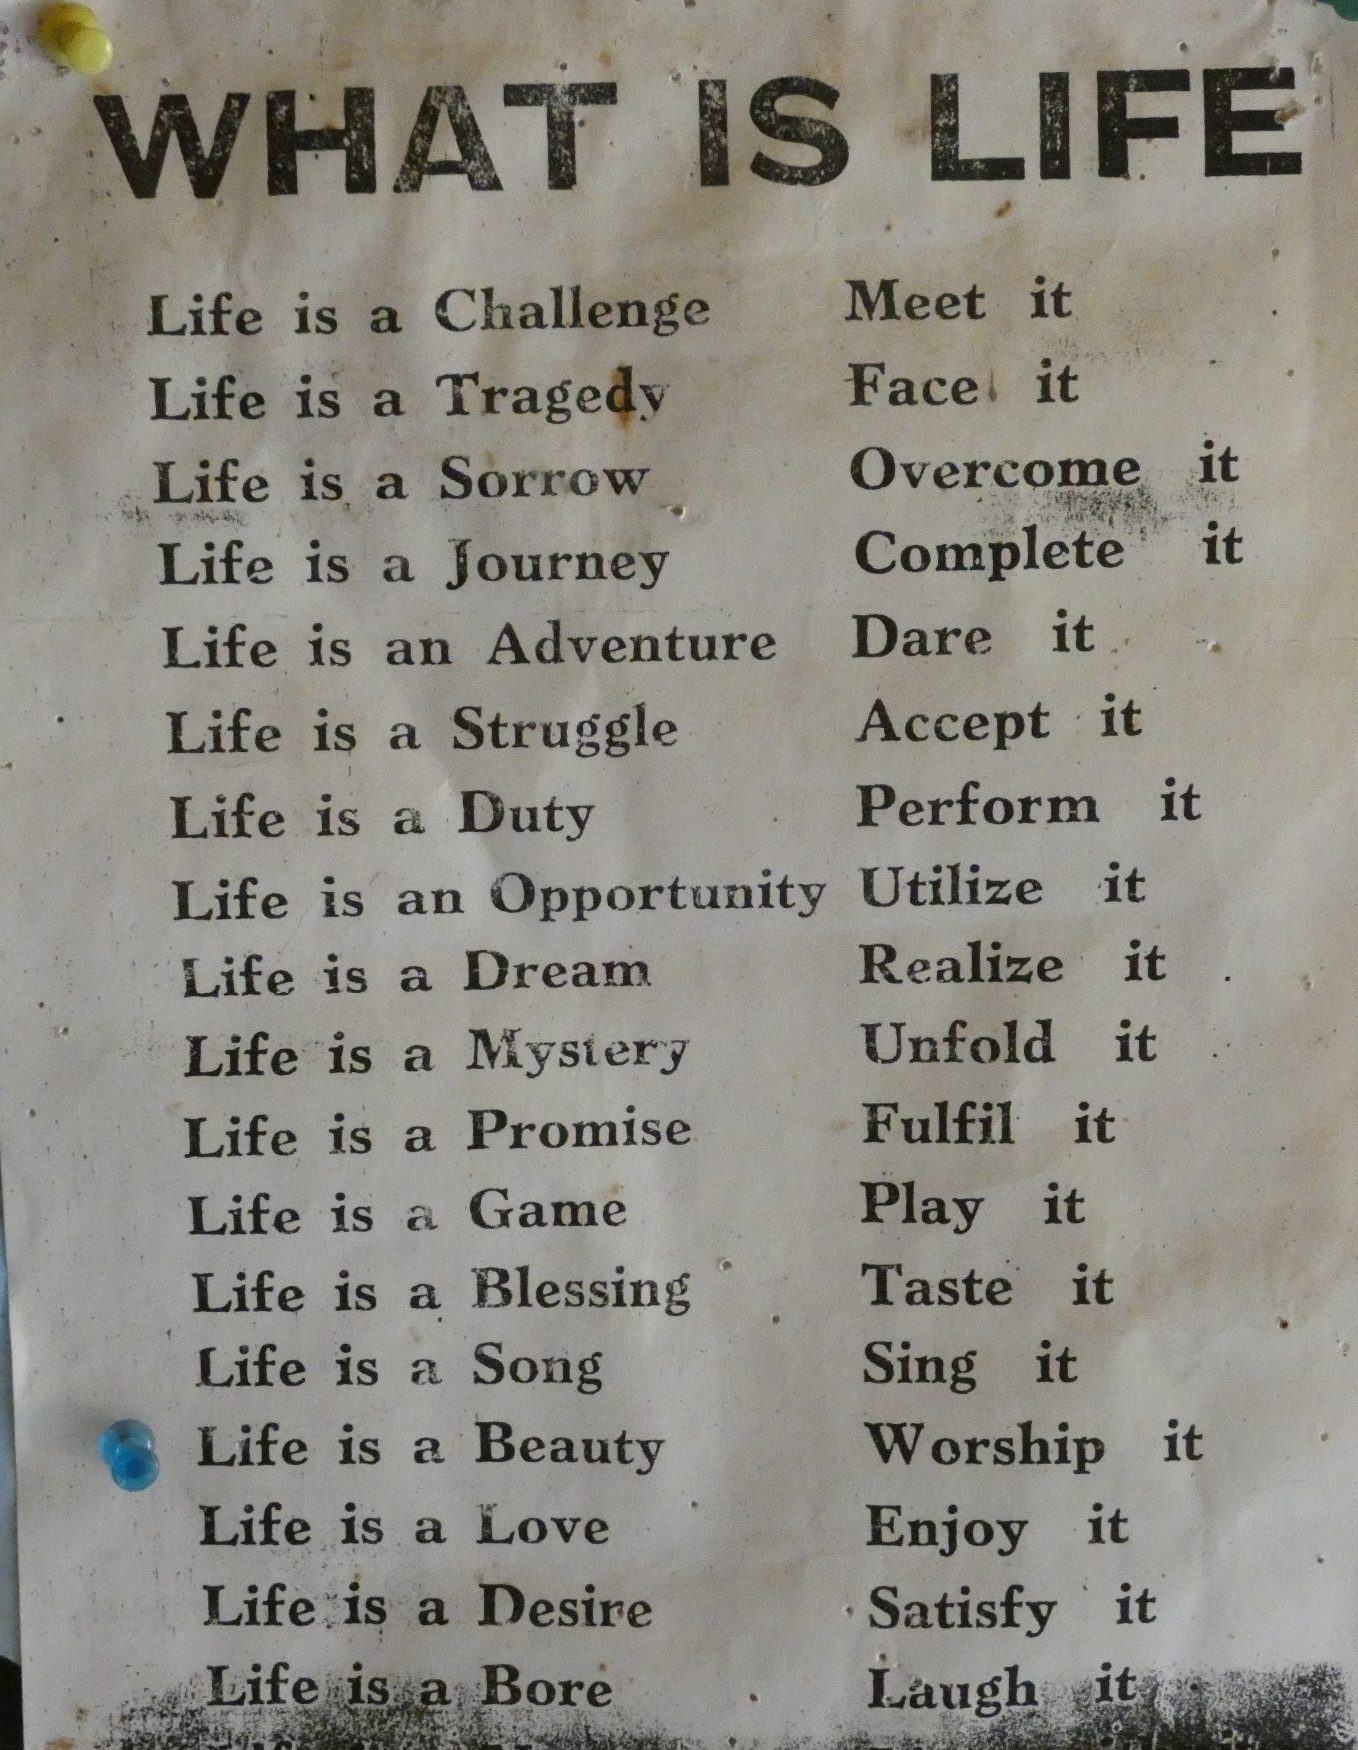 WHAT IS LIFE
Life is a Challenge Meet it
Life is a Tragedy Face it
Life is a Sorrow Overcome it
Life is a Journey Complete it
Life is an Adventure Dare it
Life is a Struggle Accept it
Life is a Duty Perform it
Life is an Opportunity Utilize it
Life is a Dream Realize it
Life is a Mystery Unfold it
Life is a Promise Fulfil it
Life is a Game Play it
Life is a Blessing Taste it
Life is a Song Sing it
Life is a Beauty Worship it
Life is a Love Enjoy it
Life is a Desire Satisfy it
Life is a Bore Laugh it